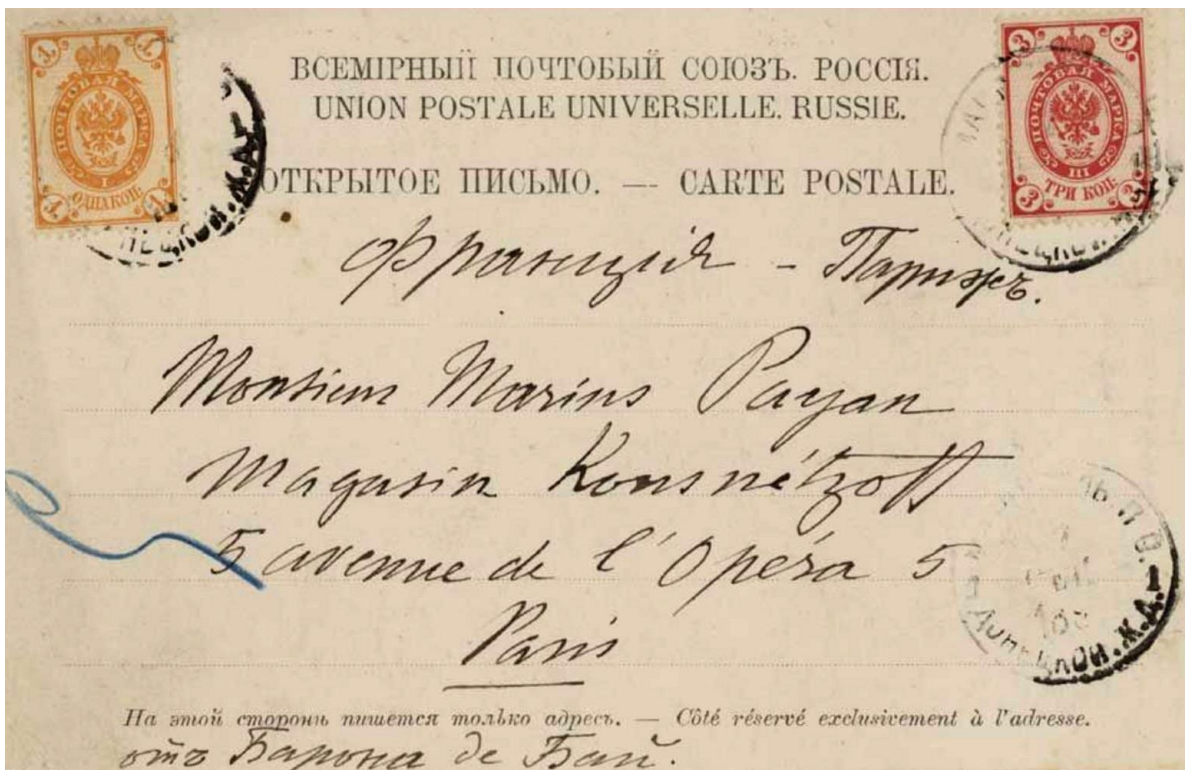 1. 1.
ПОЧТОВАЯ МАРКА
I
ОДНА КОП.
1. 1.
3 3
ПОЧТОВАЯ МАРКА
III
ТРИ КОП.
3 3
ВСЕМІРНЫЙ ПОЧТОВЫЙ СОЮЗЪ. РОССІЯ.
UNION POSTALE UNIVERSELLE. RUSSIE.
ОТКРЫТОЕ ПИСЬМО. — CARTE POSTALE.
Франція - Парижъ.
Monsieur Marius Payan
Magasin Kousnétzoff
5 avenue de l'Opéra 5
Paris
Ж.Д.
На этой сторонѣ пишется только адресъ. — Côté réservé exclusivement à l'adresse.
отъ Барона де Бай.